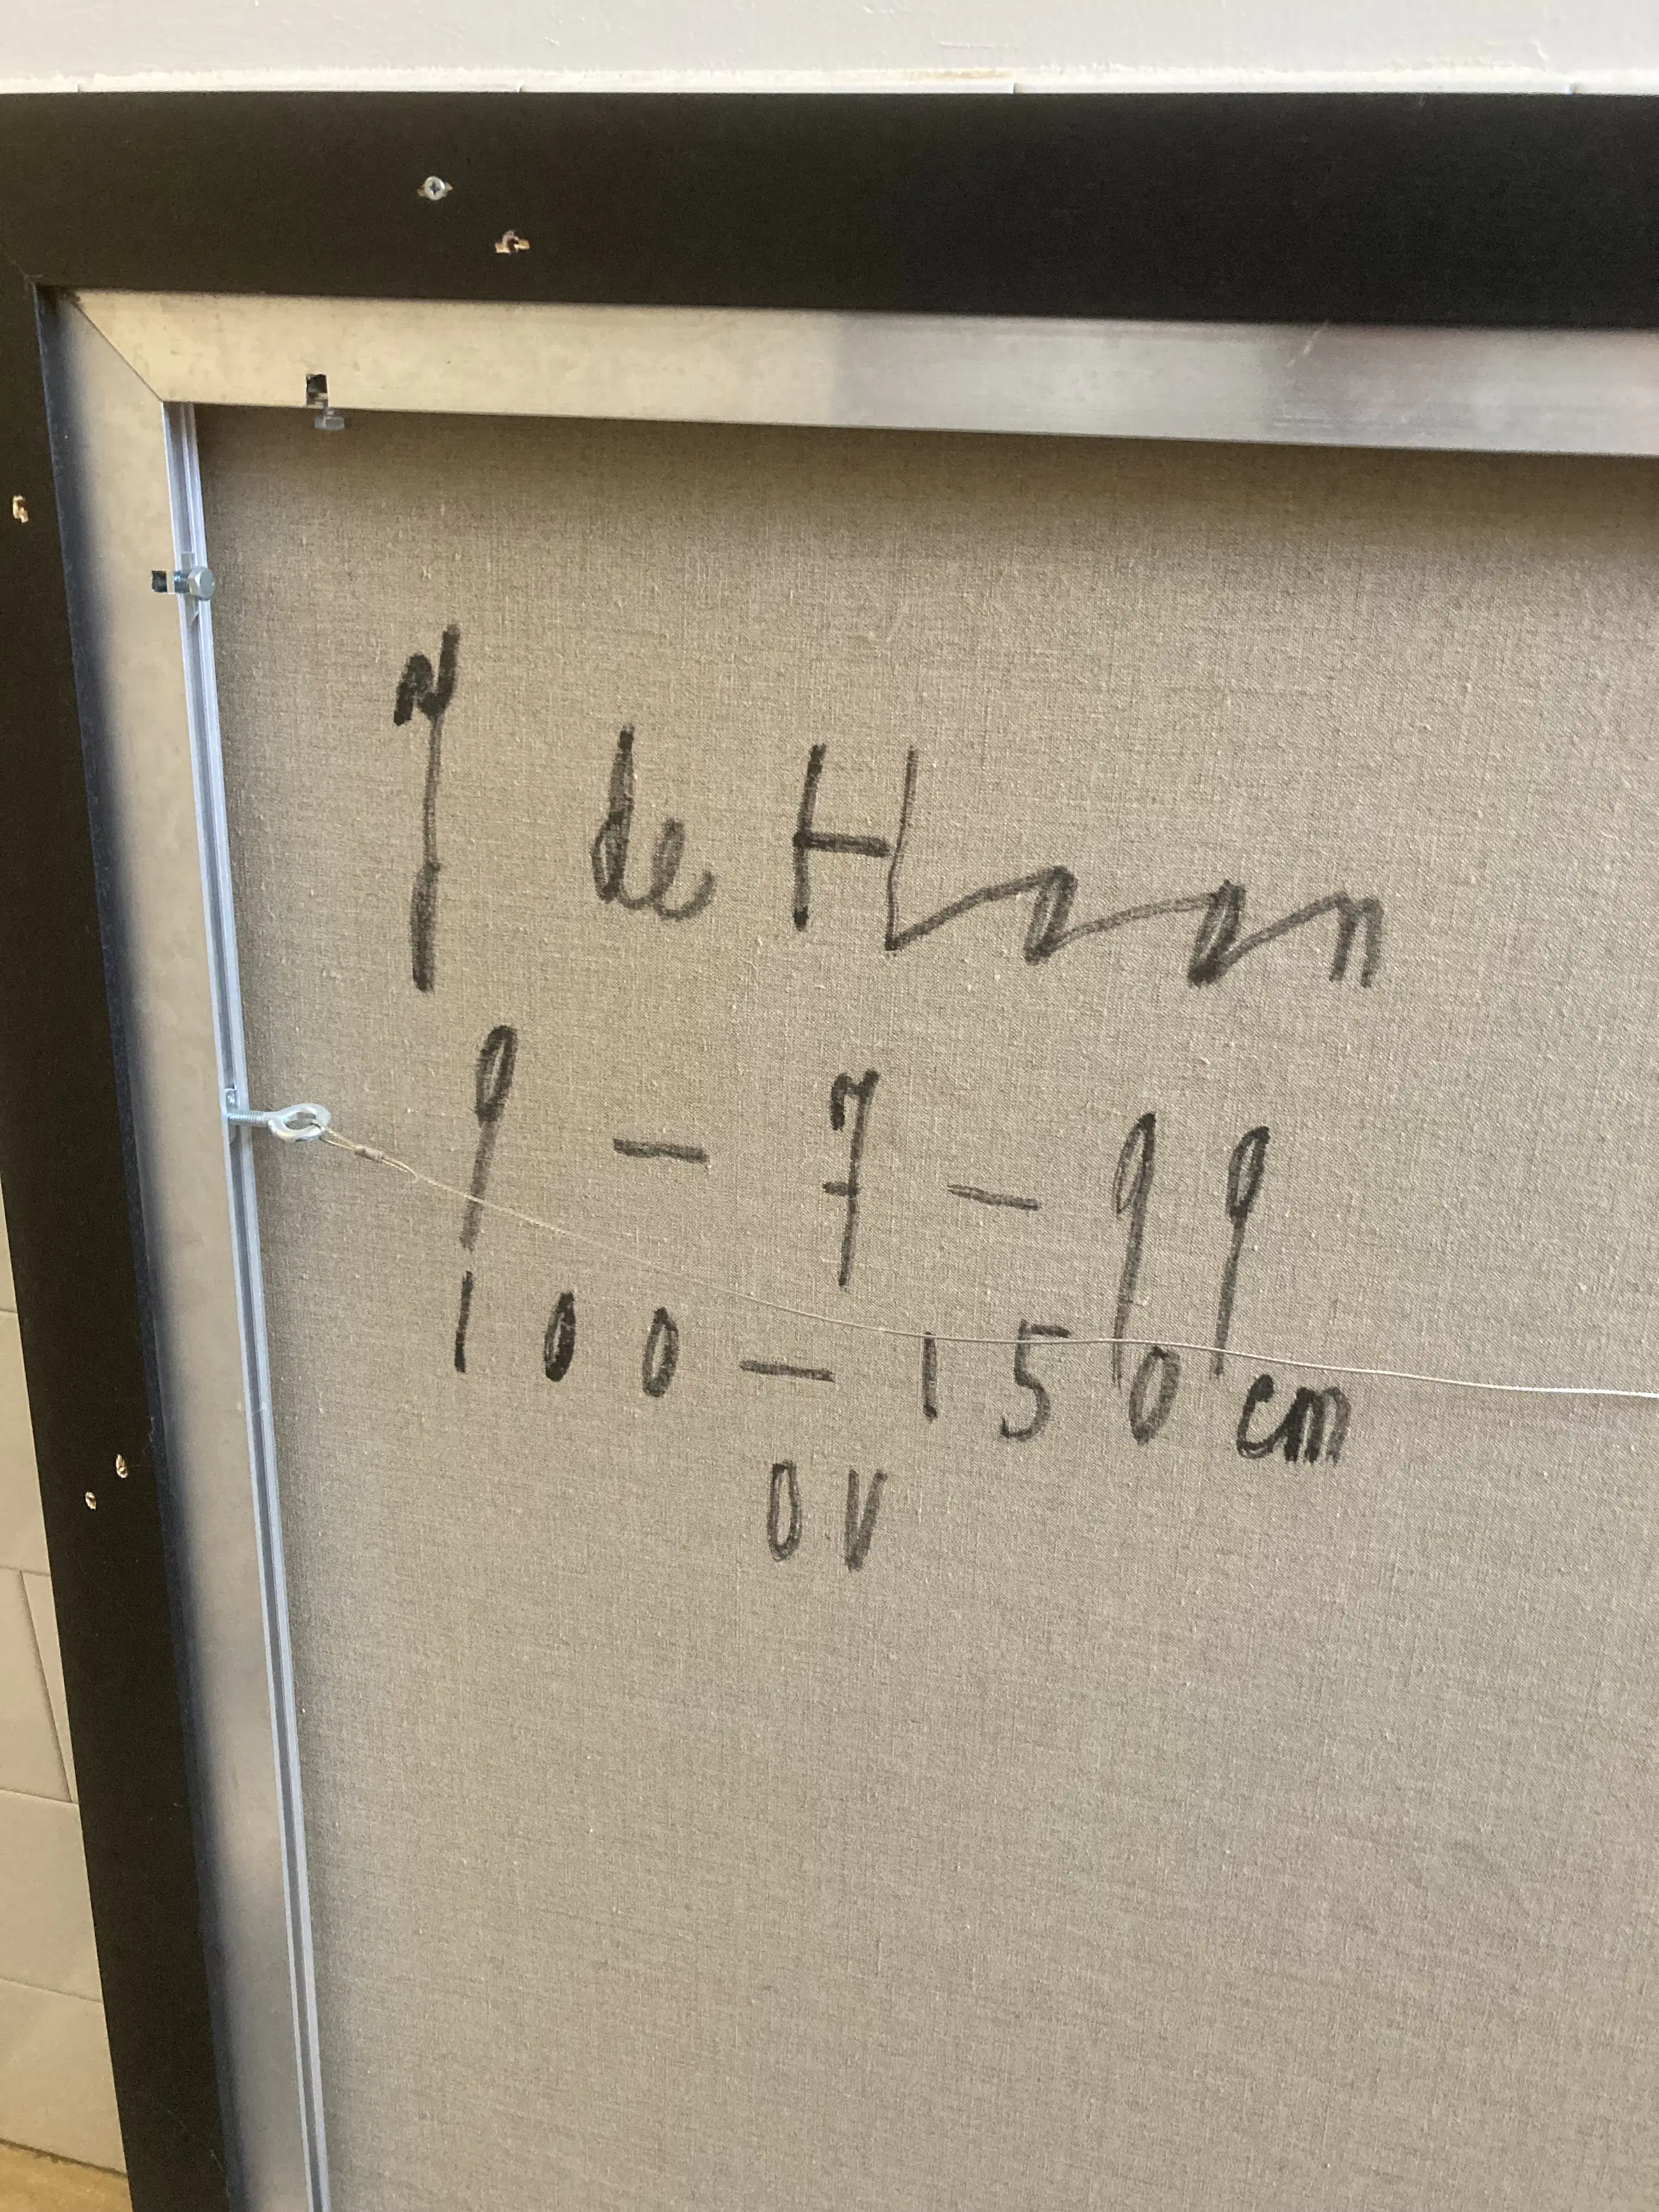 de Haan
9 - 7 - 99
100 - 150 cm
OV